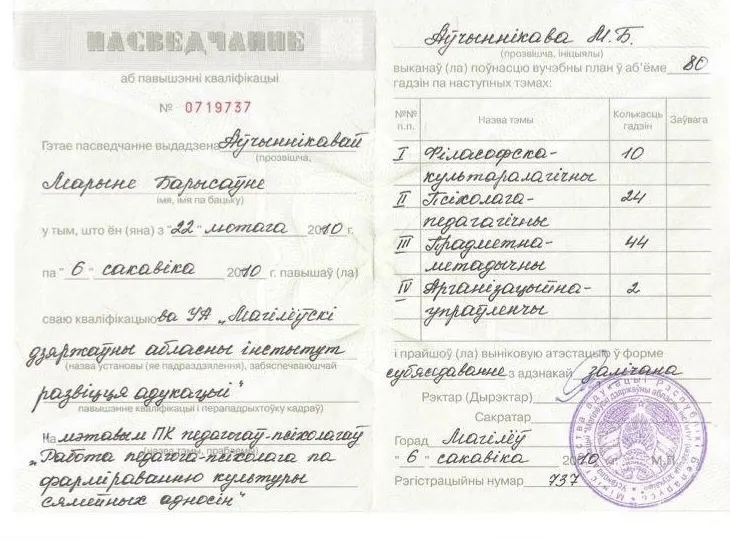 ПАСВЕДЧАННЕ
аб павышэнні кваліфікацыі
№ 0719737
Гэтае пасведчанне выдадзена Аўчыннікавай
(прозвішча,
Марыне Барысаўне
імя, імя па бацьку)
у тым, што ён (яна) з "22" лютага 2010 г.
па "6" сакавіка 2010 г. павышаў (ла)
сваю кваліфікацыю ва УА „Магілёўскі
дзяржаўны абласны інстытут
(назва установы (яе падраздзялення), забяспечваючай
развіцця адукацыі"
павышэнне кваліфікацыі і перападрыхтоўку кадраў)
На мэтавым ПК педагогаў-псіхолагаў
„Работа педагога-псіхолага па
фарміраванню культуры
сямейных адносін"
Аўчыннікава М.Б.
(прозвішча, ініцыялы)
выканаў (ла) поўнасцю вучэбны план ў аб'ёме 80
гадзін па наступных тэмах:
№№ п.п. Назва тэмы Колькасць гадзін Заўвага
I Філасофска- 10
культуралагічны
II Псіхолага- 24
педагагічны
III Прадметна- 44
метадычны
IV Арганізацыйна- 2
упраўленчы
і прайшоў (ла) выніковую атэстацыю ў форме
субяседаванне з адзнакай залічана
Рэктар (Дырэктар)
Сакратар
Горад Магілёў
"6" сакавіка 2010 г. М.П.
Рэгістрацыйны нумар 737